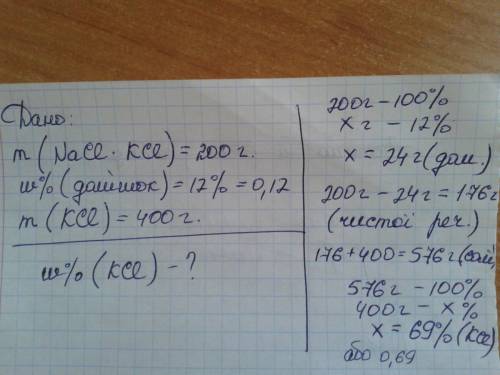 Дано:
m (NaCl · KCl) = 200 г.
w% (домішок) = 12% = 0,12
m (KCl) = 400 г.
w% (KCl) - ?
200г - 100%
x г - 12%
x = 24 г (дом.)
200г - 24г = 176г
(чистої реч.)
176 + 400 = 576 г
576г - 100%
400г - x %
x = 69% (KCl)
або 0,69